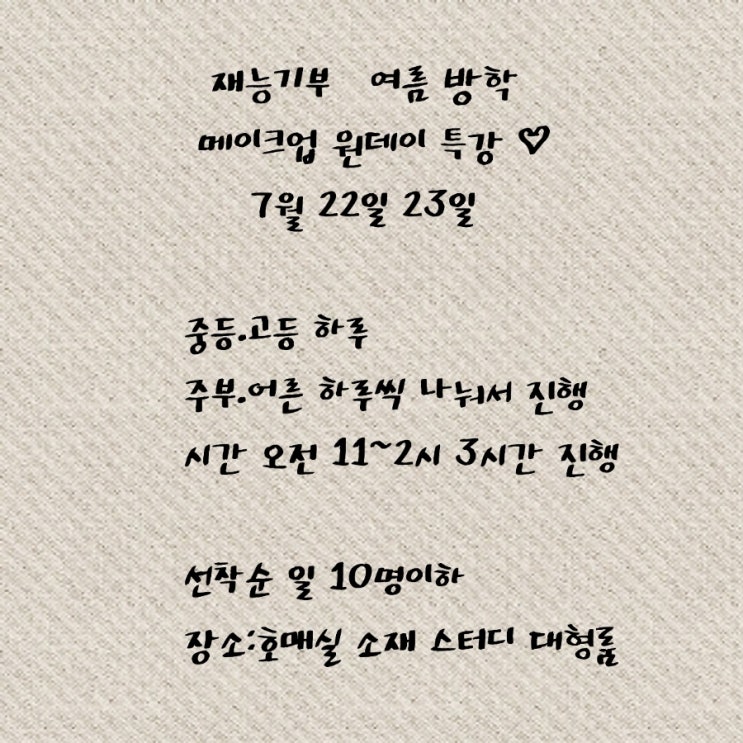 재능기부 여름 방학
메이크업 원데이 특강 ♡
7월 22일 23일
중등.고등 하루
주부.어른 하루씩 나눠서 진행
시간 오전 11~2시 3시간 진행
선착순 일 10명이하
장소:호매실 소재 스터디 대형룸